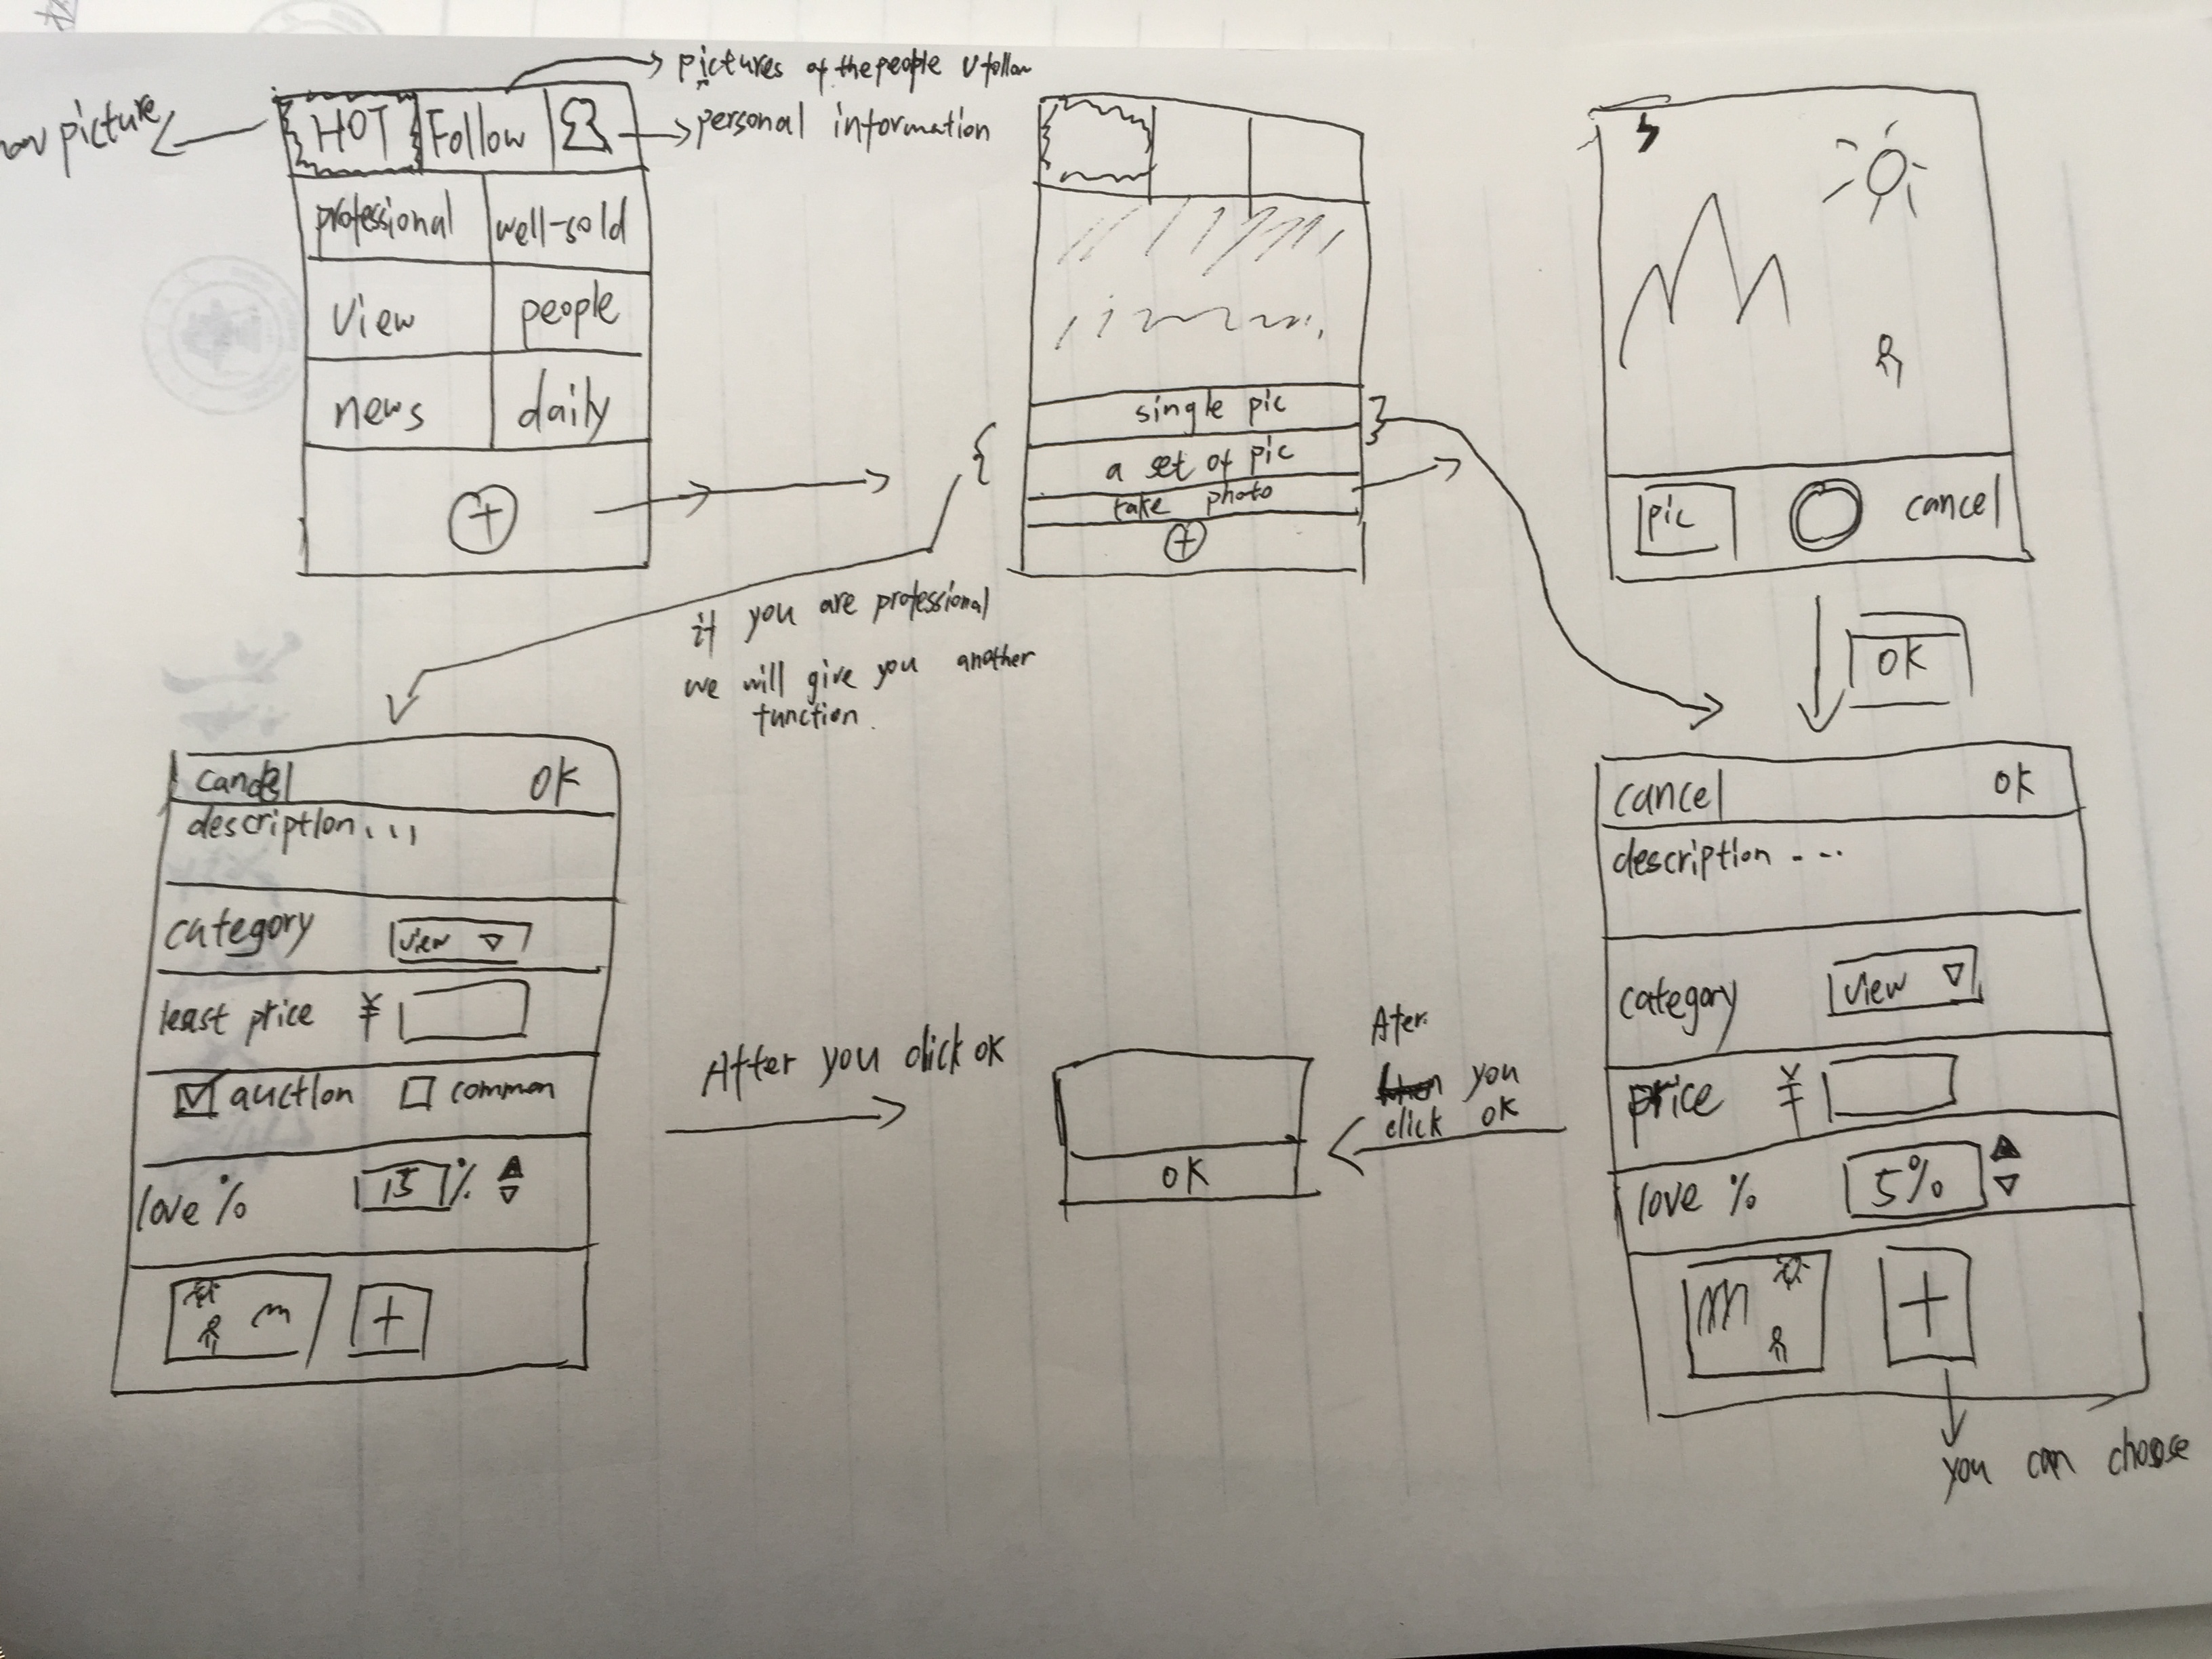 pictures of the people U follow
picture
HOT Follow
personal information
professional well-sold
view people
news daily
+
single pic
a set of pic
take photo
+
pic cancel
OK
if you are professional
we will give you another
function.
cancel OK
description...
category view
least price ¥
auction common
love % 15 %
+
After you click OK
OK
After
you
click OK
cancel OK
description ...
category view
price ¥
love % 5%
+
you can choose